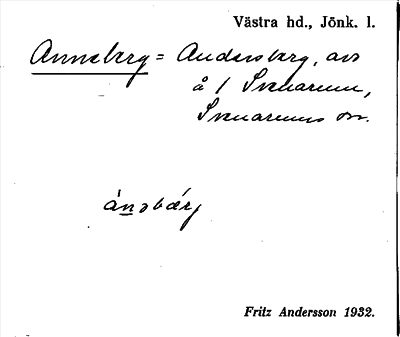 Västra hd., Jönk. l.
Anneberg = Andersberg, avs
å 1 Svenarum,
Svenarums sn.
ánsbærj
Fritz Andersson 1932.